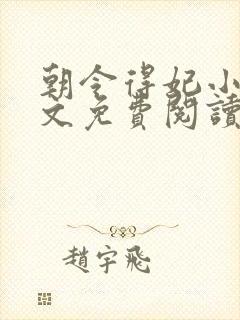 朝令得妃小
文免費閱讀
趙宇飛